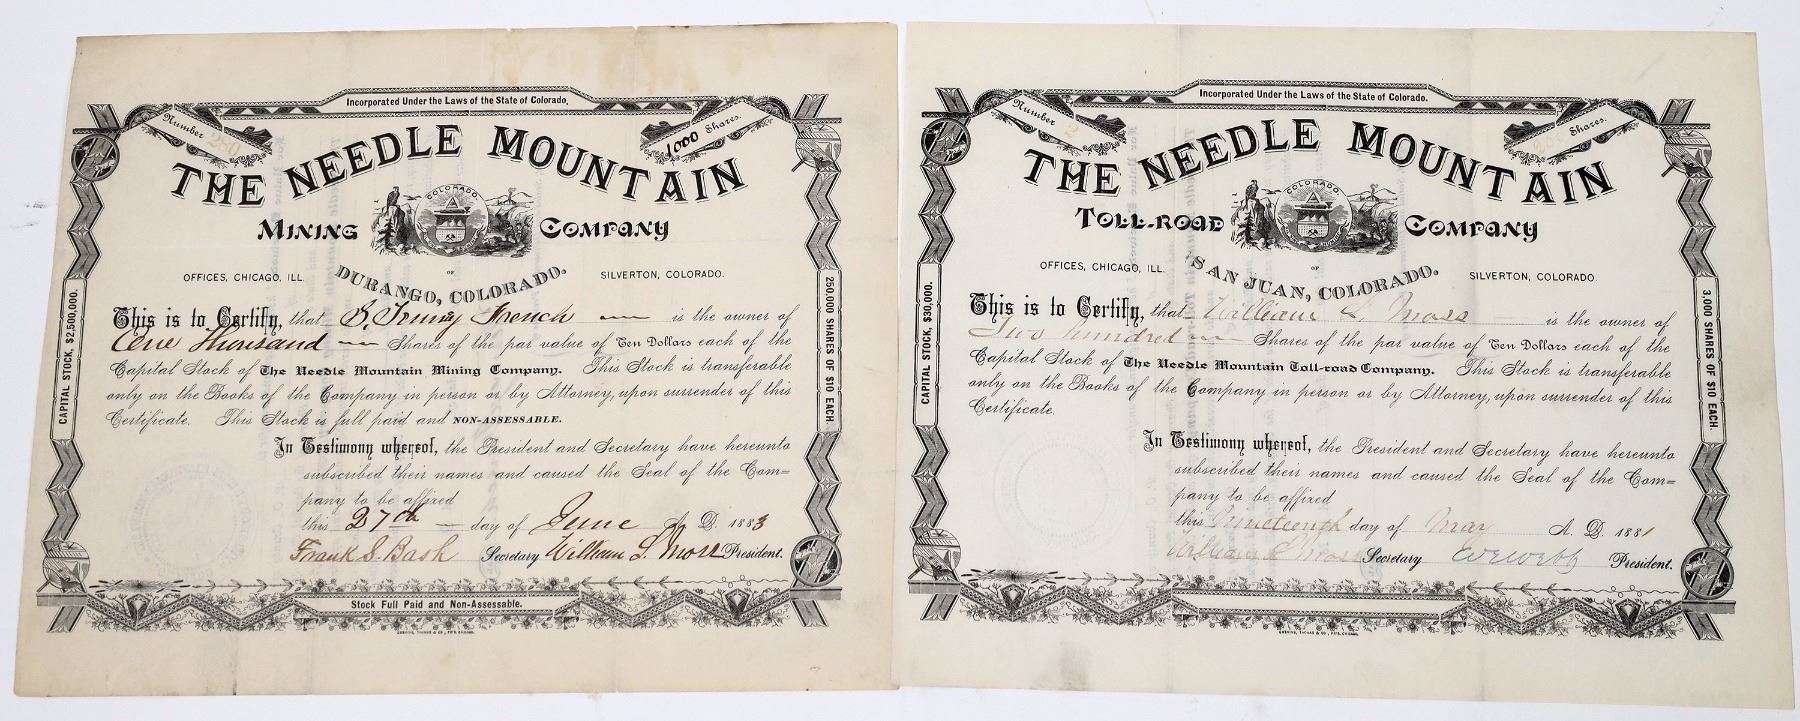 Incorporated Under the Laws of the State of Colorado.
Number 250
1000 Shares.
THE NEEDLE MOUNTAIN
COLORADO
MINING COMPANY
OF
OFFICES, CHICAGO, ILL.
DURANGO, COLORADO.
SILVERTON, COLORADO.
This is to Certify, that S. French is the owner of
One Thousand Shares of the par value of Ten Dollars each of the
Capital Stock of The Needle Mountain Mining Company. This Stock is transferable
only on the Books of the Company in person or by Attorney, upon surrender of this
Certificate. This Stock is full paid and NON-ASSESSABLE.
In Testimony whereof, the President and Secretary have hereunto
subscribed their names and caused the Seal of the Com=
pany to be affixed
this 27th day of June A. D. 1883
Frank S. Bash Secretary William L. Moss President.
Stock Full Paid and Non-Assessable.
CAPITAL STOCK, $2,500,000.
250,000 SHARES OF $10 EACH.
Incorporated Under the Laws of the State of Colorado.
Number 2
Shares.
THE NEEDLE MOUNTAIN
COLORADO
TOLL-ROAD COMPANY
OF
OFFICES, CHICAGO, ILL.
SAN JUAN, COLORADO.
SILVERTON, COLORADO.
This is to Certify, that William L. Moss is the owner of
Two hundred Shares of the par value of Ten Dollars each of the
Capital Stock of The Needle Mountain Toll-road Company. This Stock is transferable
only on the Books of the Company in person or by Attorney, upon surrender of this
Certificate.
In Testimony whereof, the President and Secretary have hereunto
subscribed their names and caused the Seal of the Com=
pany to be affixed
this Nineteenth day of May A. D. 1881
William L Moss Secretary President.
CAPITAL STOCK, $30,000.
3,000 SHARES OF $10 EACH.